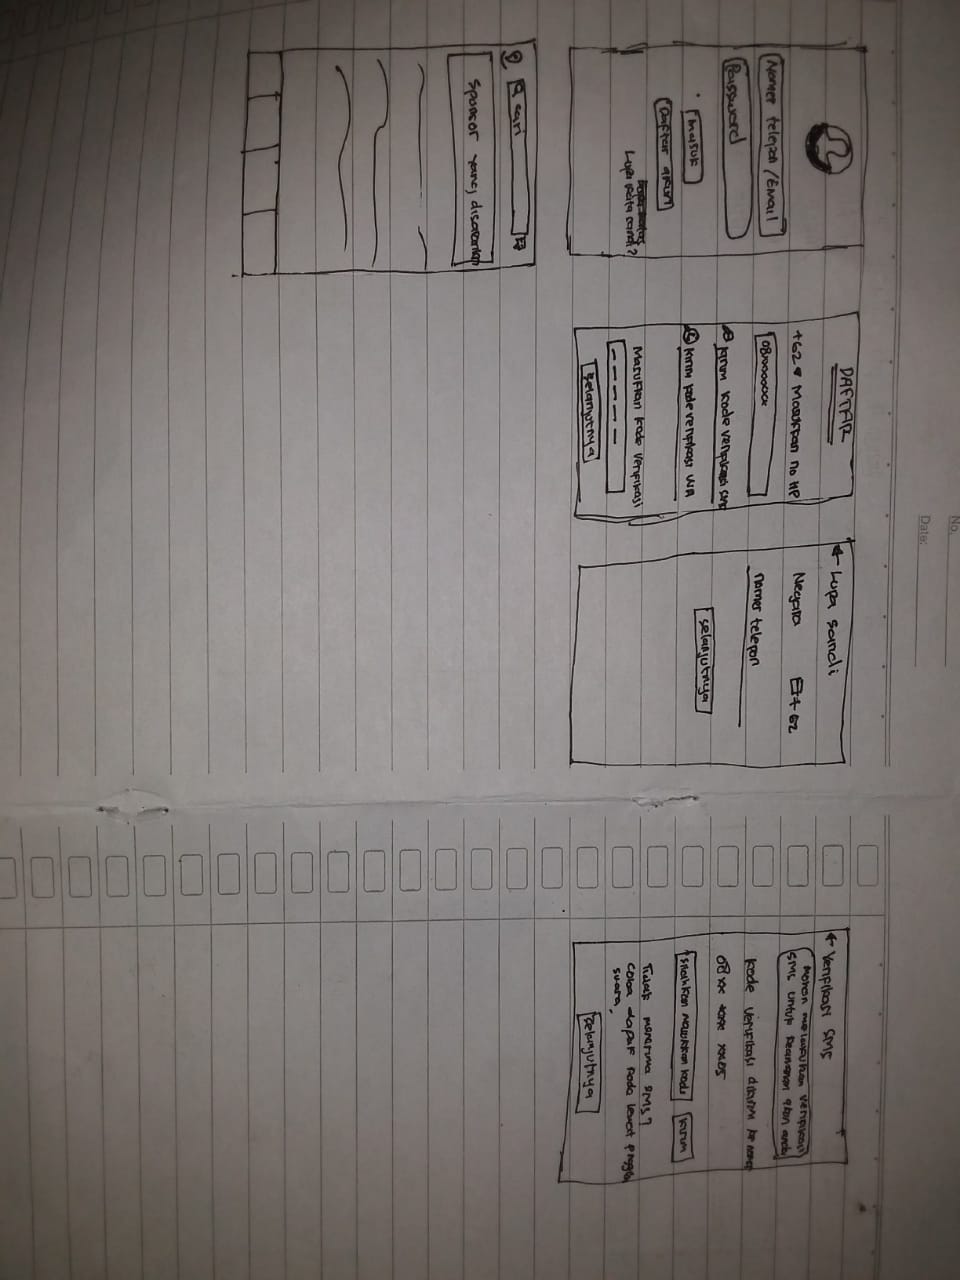 No.
Date:
Nomer telepon / Email
Password
Masuk
Daftar akun
Lupa kata sandi?
DAFTAR
+62 Masukkan no HP
08xxxxxxxx
kirim kode verifikasi SMS
kirim kode verifikasi WA
Masukkan kode verifikasi
- - - - -
Selanjutnya
← Lupa sandi
Negara +62
nomer telepon
Selanjutnya
← Verifikasi SMS
Mohon melakukan verifikasi
SMS untuk keamanan akun anda
kode verifikasi dikirim ke nomer
08xx xxxx xxx05
Silahkan masukkan kode kirim
Tidak menerima SMS?
coba dapat kode lewat
suara,
Selanjutnya
cari
Sponsor yang disarankan